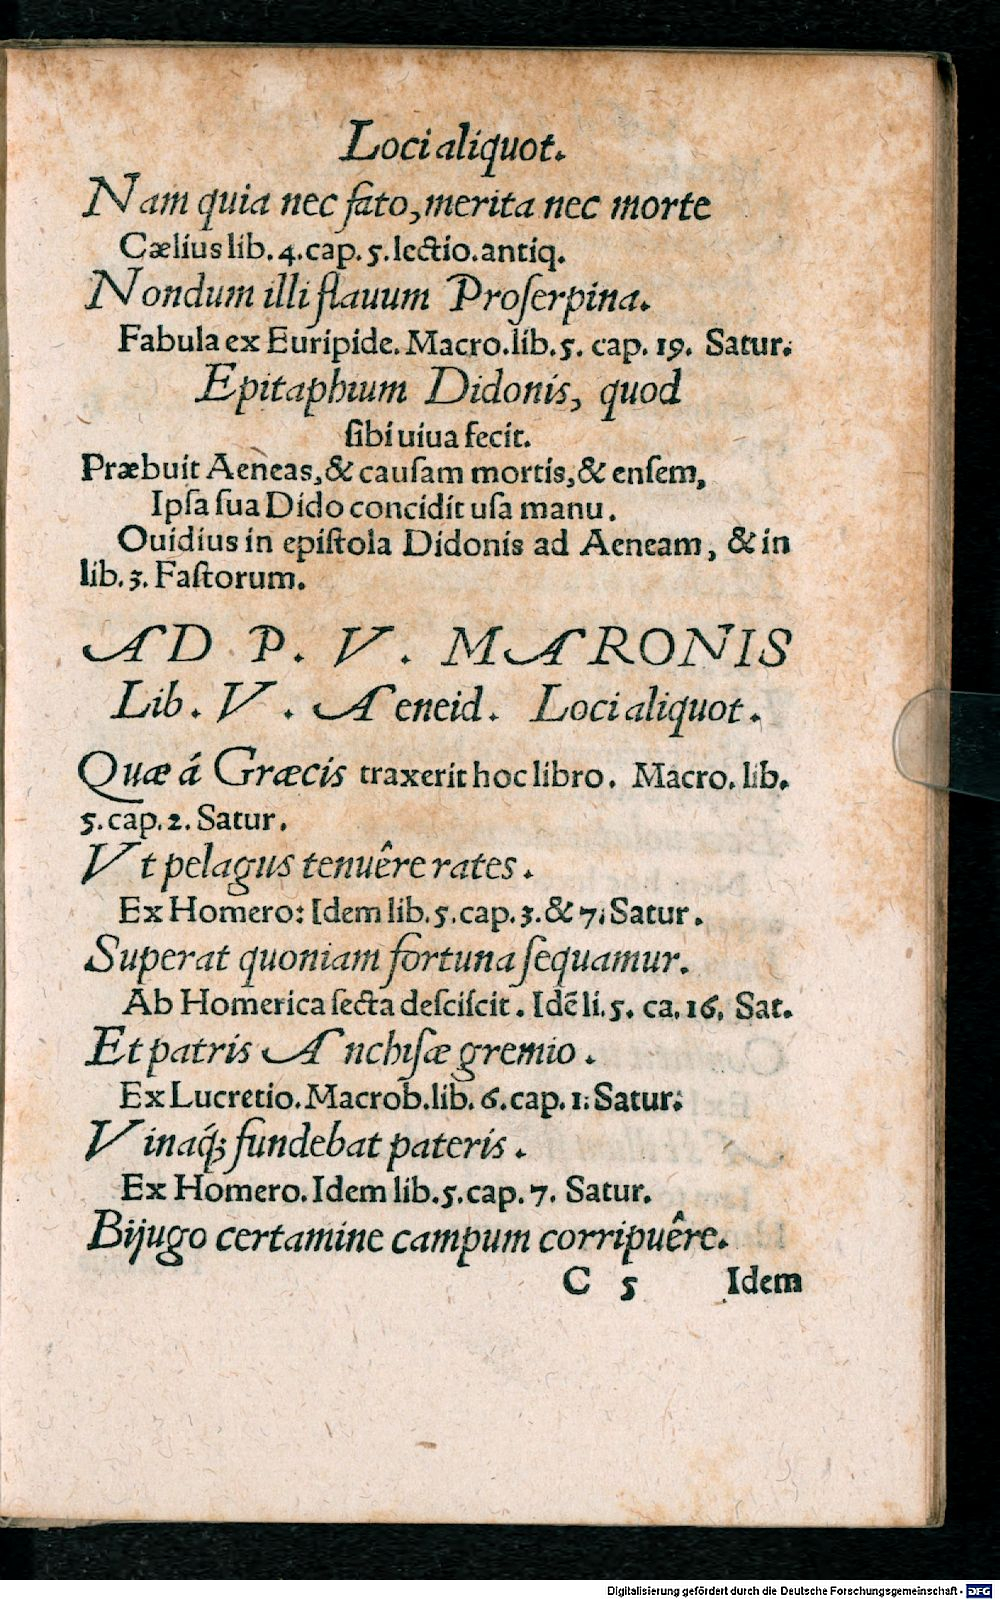 Loci aliquot.
Nam quia nec fato, merita nec morte
Cælius lib. 4. cap. 5. lectio. antiq.
Nondum illi flauum Proſerpina.
Fabula ex Euripide. Macro. lib. 5. cap. 19. Satur.
Epitaphium Didonis, quod
ſibi uiua fecit.
Præbuit Aeneas, & cauſam mortis, & enſem,
Ipſa ſua Dido concidit uſa manu.
Ouidius in epiſtola Didonis ad Aeneam, & in
lib. 3. Faſtorum.
AD P. V. MARONIS
Lib. V. Aeneid. Loci aliquot.
Quæ á Græcis traxerit hoc libro. Macro. lib.
5. cap. 2. Satur.
Vt pelagus tenuêre rates.
Ex Homero: Idem lib. 5. cap. 3. & 7. Satur.
Superat quoniam fortuna ſequamur.
Ab Homerica ſecta deſciſcit. Idē li. 5. ca. 16. Sat.
Et patris Anchiſæ gremio.
Ex Lucretio. Macrob. lib. 6. cap. 1. Satur.
Vinaq́; fundebat pateris.
Ex Homero. Idem lib. 5. cap. 7. Satur.
Bijugo certamine campum corripuêre.
C 5 Idem
Digitalisierung gefördert durch die Deutsche Forschungsgemeinschaft - DFG